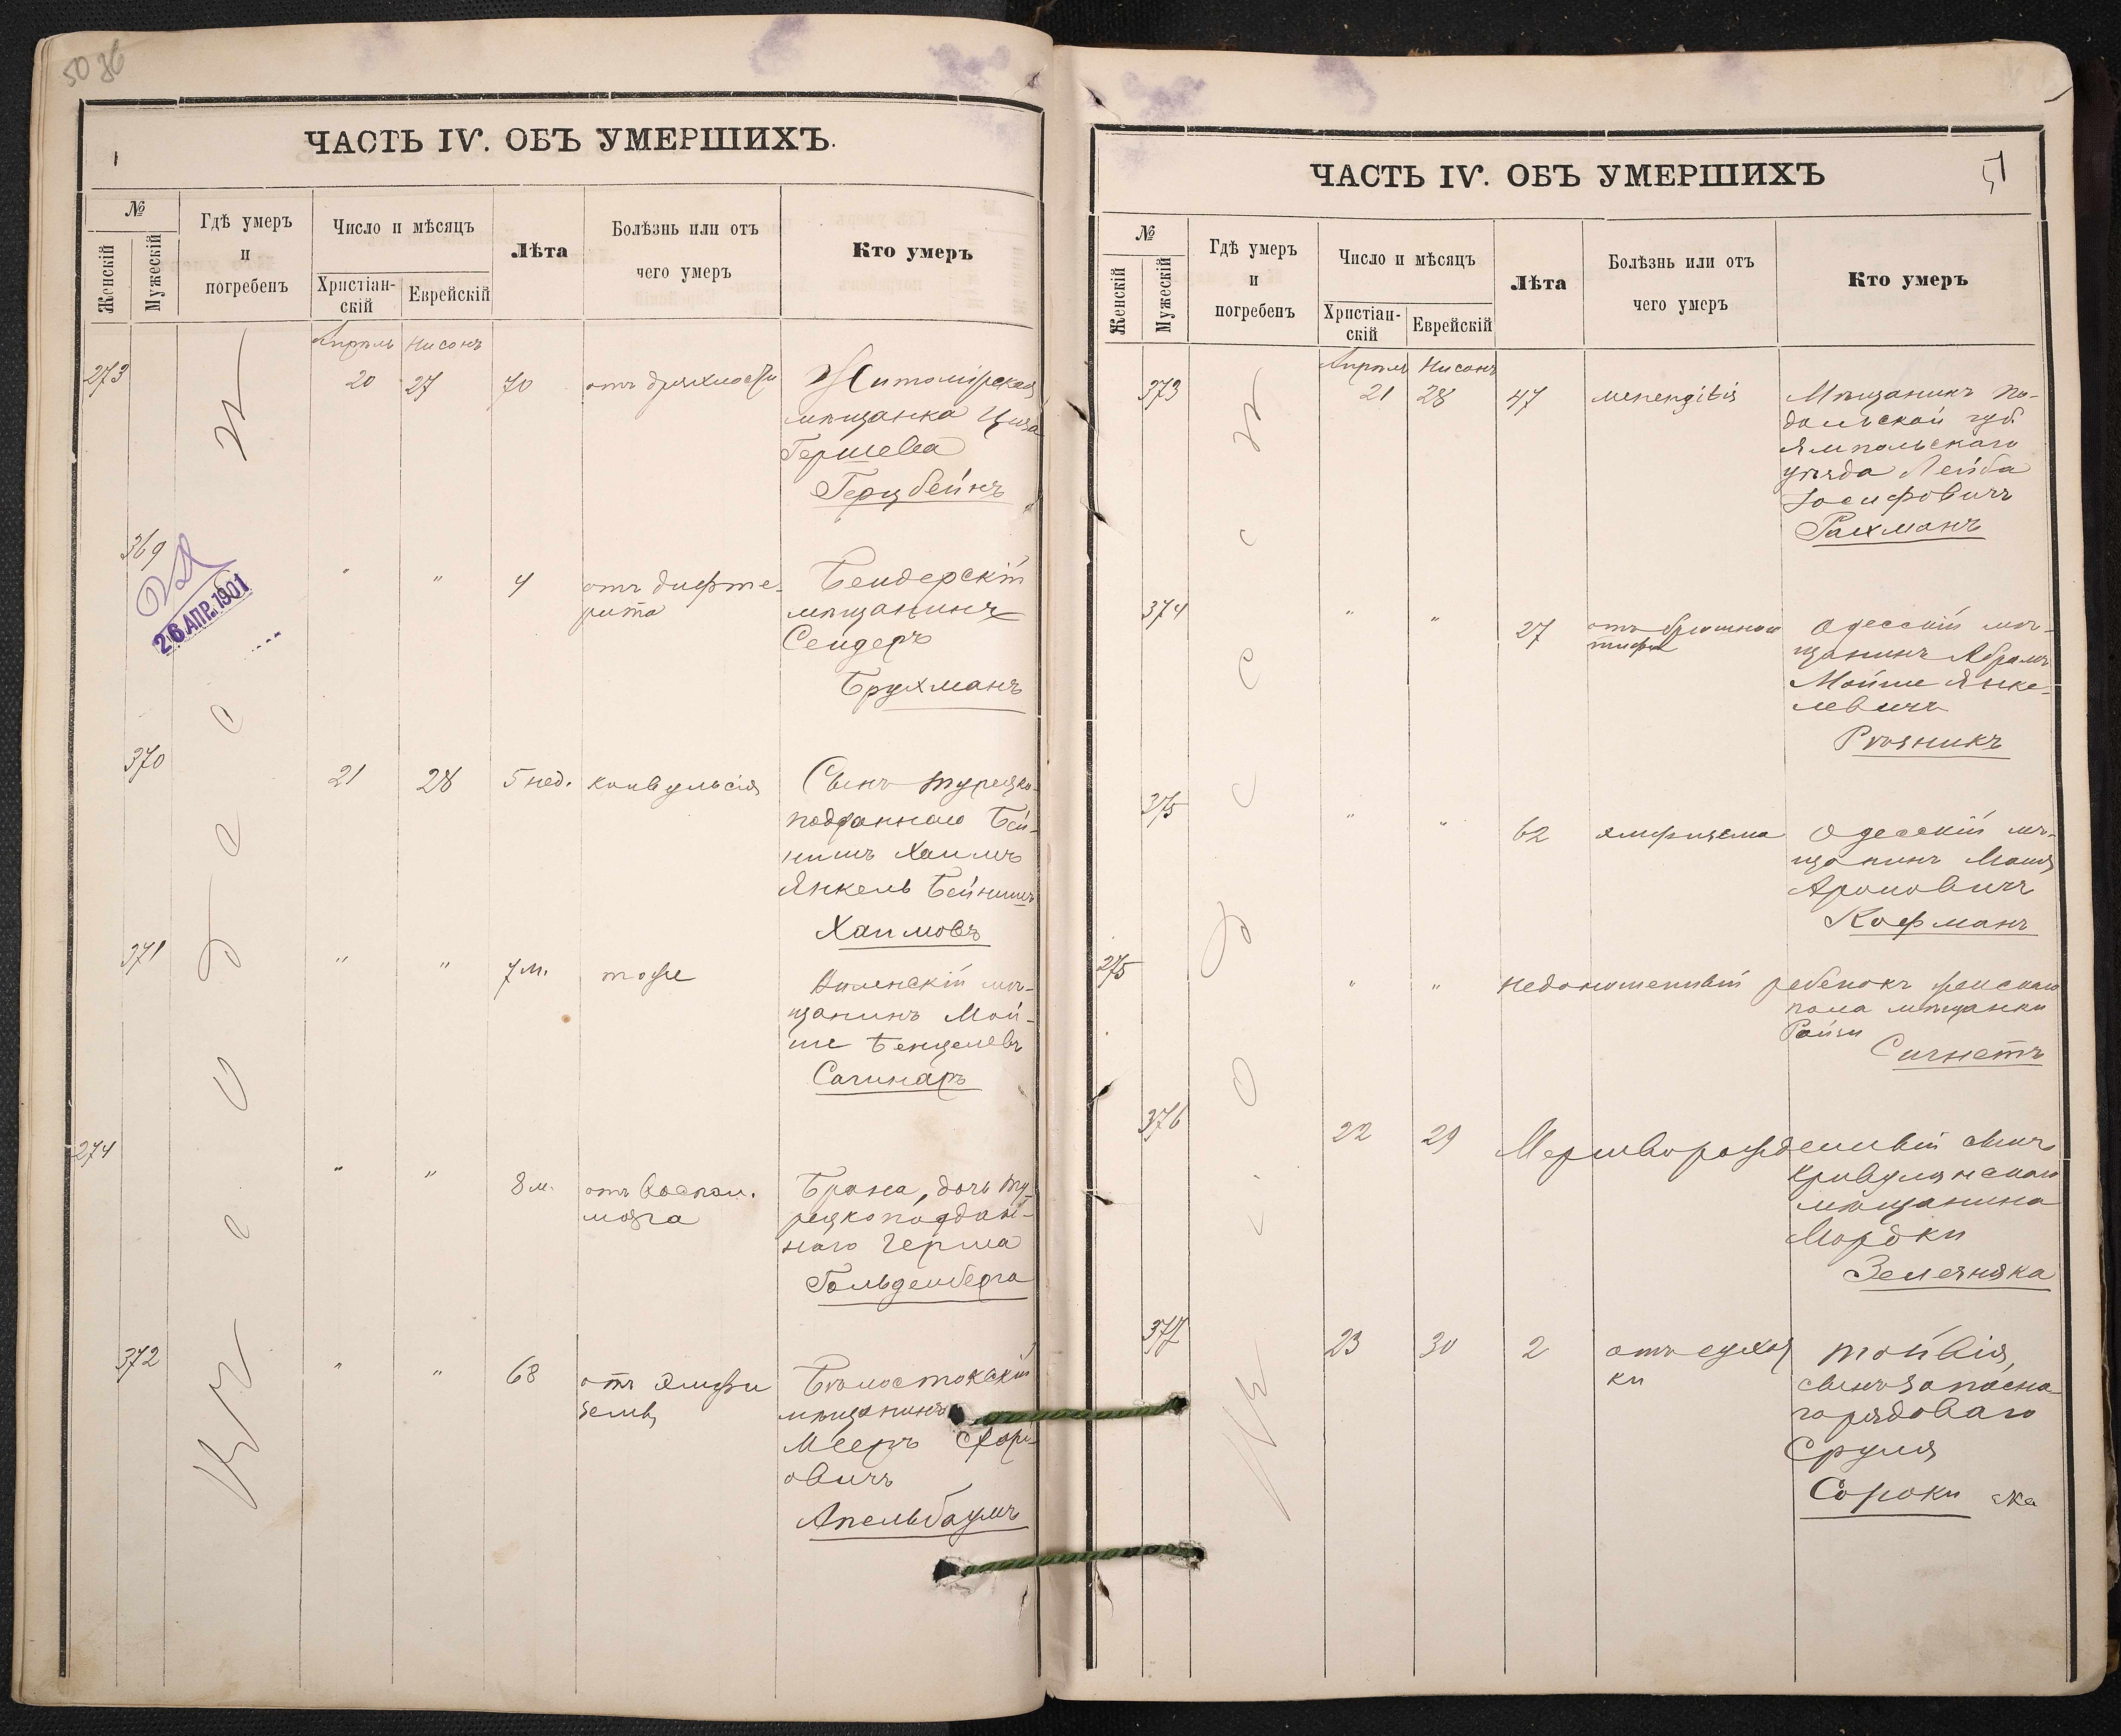 50 36
ЧАСТЬ IV. ОБЪ УМЕРШИХЪ.
№
Женскій
Мужескій
Гдѣ умеръ
и
погребенъ
Число и мѣсяцъ
Христіан-
скій
Еврейскій
Лѣта
Болѣзнь или отъ
чего умеръ
Кто умеръ
Апрѣль Нисонъ
273 20 27 70 отъ дряхлости Житомірская
мѣщанка
Гершева
Герцбейнъ
369
26 АПР. 1901
" " 4 отъ дифте-
рита
Бендерскій
мѣщанинъ
Сендеръ
Брухманъ
370
21 28 5 нед. конвульсія Сынъ турецко-
подданнаго Бей-
нишъ Хаимъ
Янкель Бейнишъ
Хаимовъ
371
" " 7 м. тоже Виленскій мѣ-
щанинъ Мой-
ше Бенцелевъ
Сагинаръ
274
" " 8 м. отъ воспал.
мозга
Брана, дочь ту-
рецкоподдан-
наго Герша
Гольденберга
372
" " 68 отъ эмфи
земы
Бѣлостокскій
мѣщанинъ
Мееръ
овичъ
Апельбаумъ
Одессѣ
51
ЧАСТЬ IV. ОБЪ УМЕРШИХЪ
№
Женскій
Мужескій
Гдѣ умеръ
и
погребенъ
Число и мѣсяцъ
Христіан-
скій
Еврейскій
Лѣта
Болѣзнь или отъ
чего умеръ
Кто умеръ
Апрѣль Нисонъ
373 21 28 47 менengitis Мѣщанинъ По-
дольской губ.
Ямпольскаго
уѣзда Лейба
Іосифовичъ
Рахманъ
374
" " 27 отъ брюшнаго
тифа
Одесскій мѣ-
щанинъ Абрамъ
Мойше Янке-
левичъ
Рѣзникъ
375
" " 62 эмфизема Одесскій мѣ-
щанинъ
Ароновичъ
Кофманъ
275
" " недоношенный ребенокъ женскаго
пола мѣщанки
Рейзи
Сигнетъ
376
22 29 Мертворожденный сынъ
Кривулянскаго
мѣщанина
Мордки
Зелезняка
377
23 30 2 отъ сухот
ки
Тойвія,
сынъ запасна-
го рядоваго
Сруля
Сороки
Одессѣ